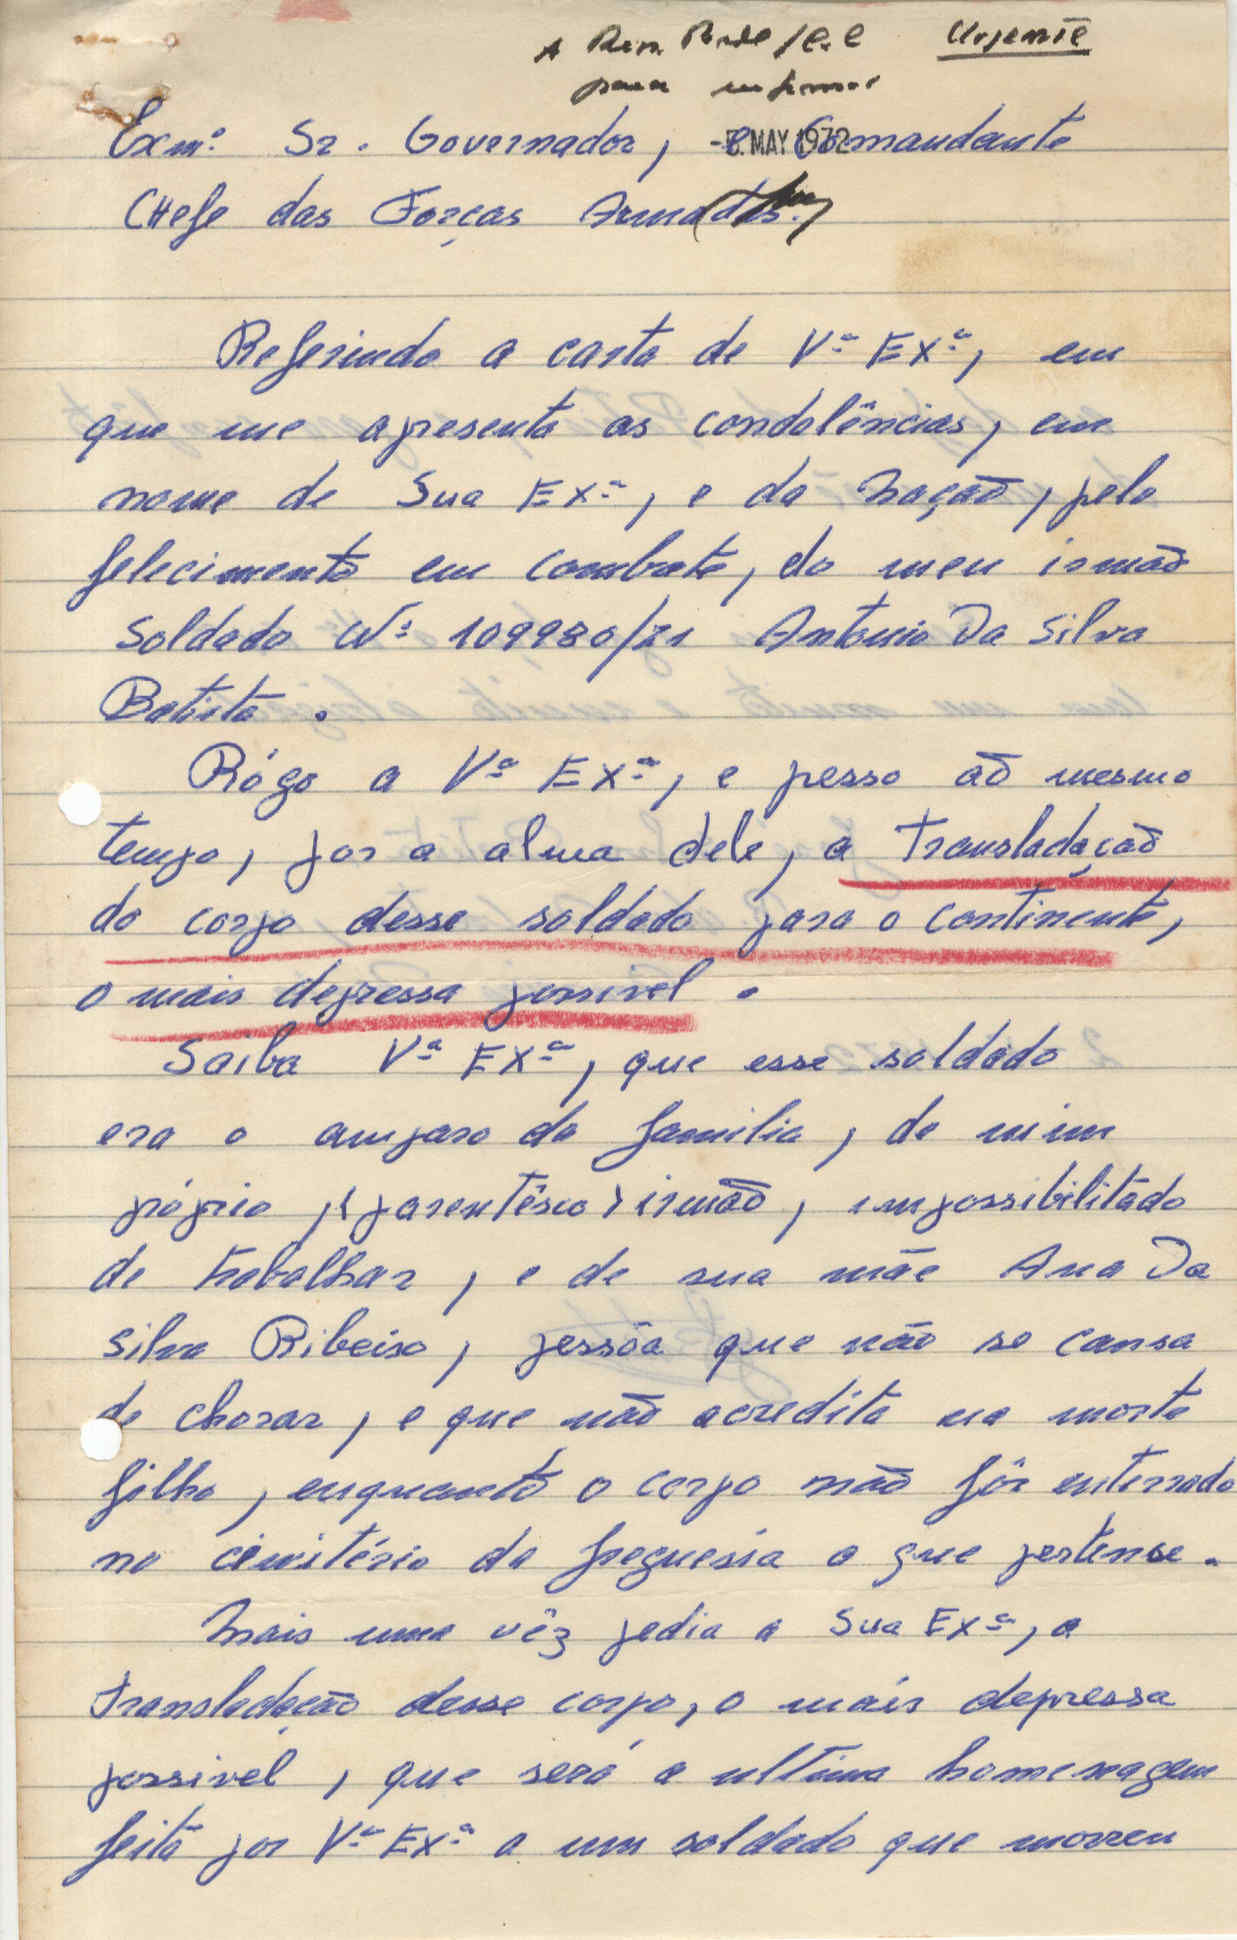 Urgente
para informar
Exmº. Sr. Governador, e Comandante
5 MAY 1972
CHefe das Forças Armadas.
Referindo a carta de Vª EXª, em
que me apresenta as condolências, em
nome de Sua EXª, e da Nação, pelo
felecimento em combate, do meu irmão
Soldado Nº 109980/71 Antonio Da Silva
Batista.
Rógo a Vª EXª, e pesso aõ mesmo
tempo, por a alma dele, a Transladaçaõ
do corpo desse soldado para o continente,
o mais depressa possivel.
Saiba Vª EXª, que esse soldado
era o amparo da familia, de mim
própio, (parentêsco) irmaõ, impossibilitado
de trabalhar, e de sua mãe Ana Da
Silva Ribeiro, pessôa que não se cansa
de chorar, e que não acredita na morte
filho, enquanto o corpo não fôr enterrado
no cimitério da freguesia a que pertense.
Mais uma vêz pedia a Sua EXª, a
Transladação desse corpo, o mais depressa
possivel, que será a ultima homenagem
feita por Vª EXª a um soldado que morreu